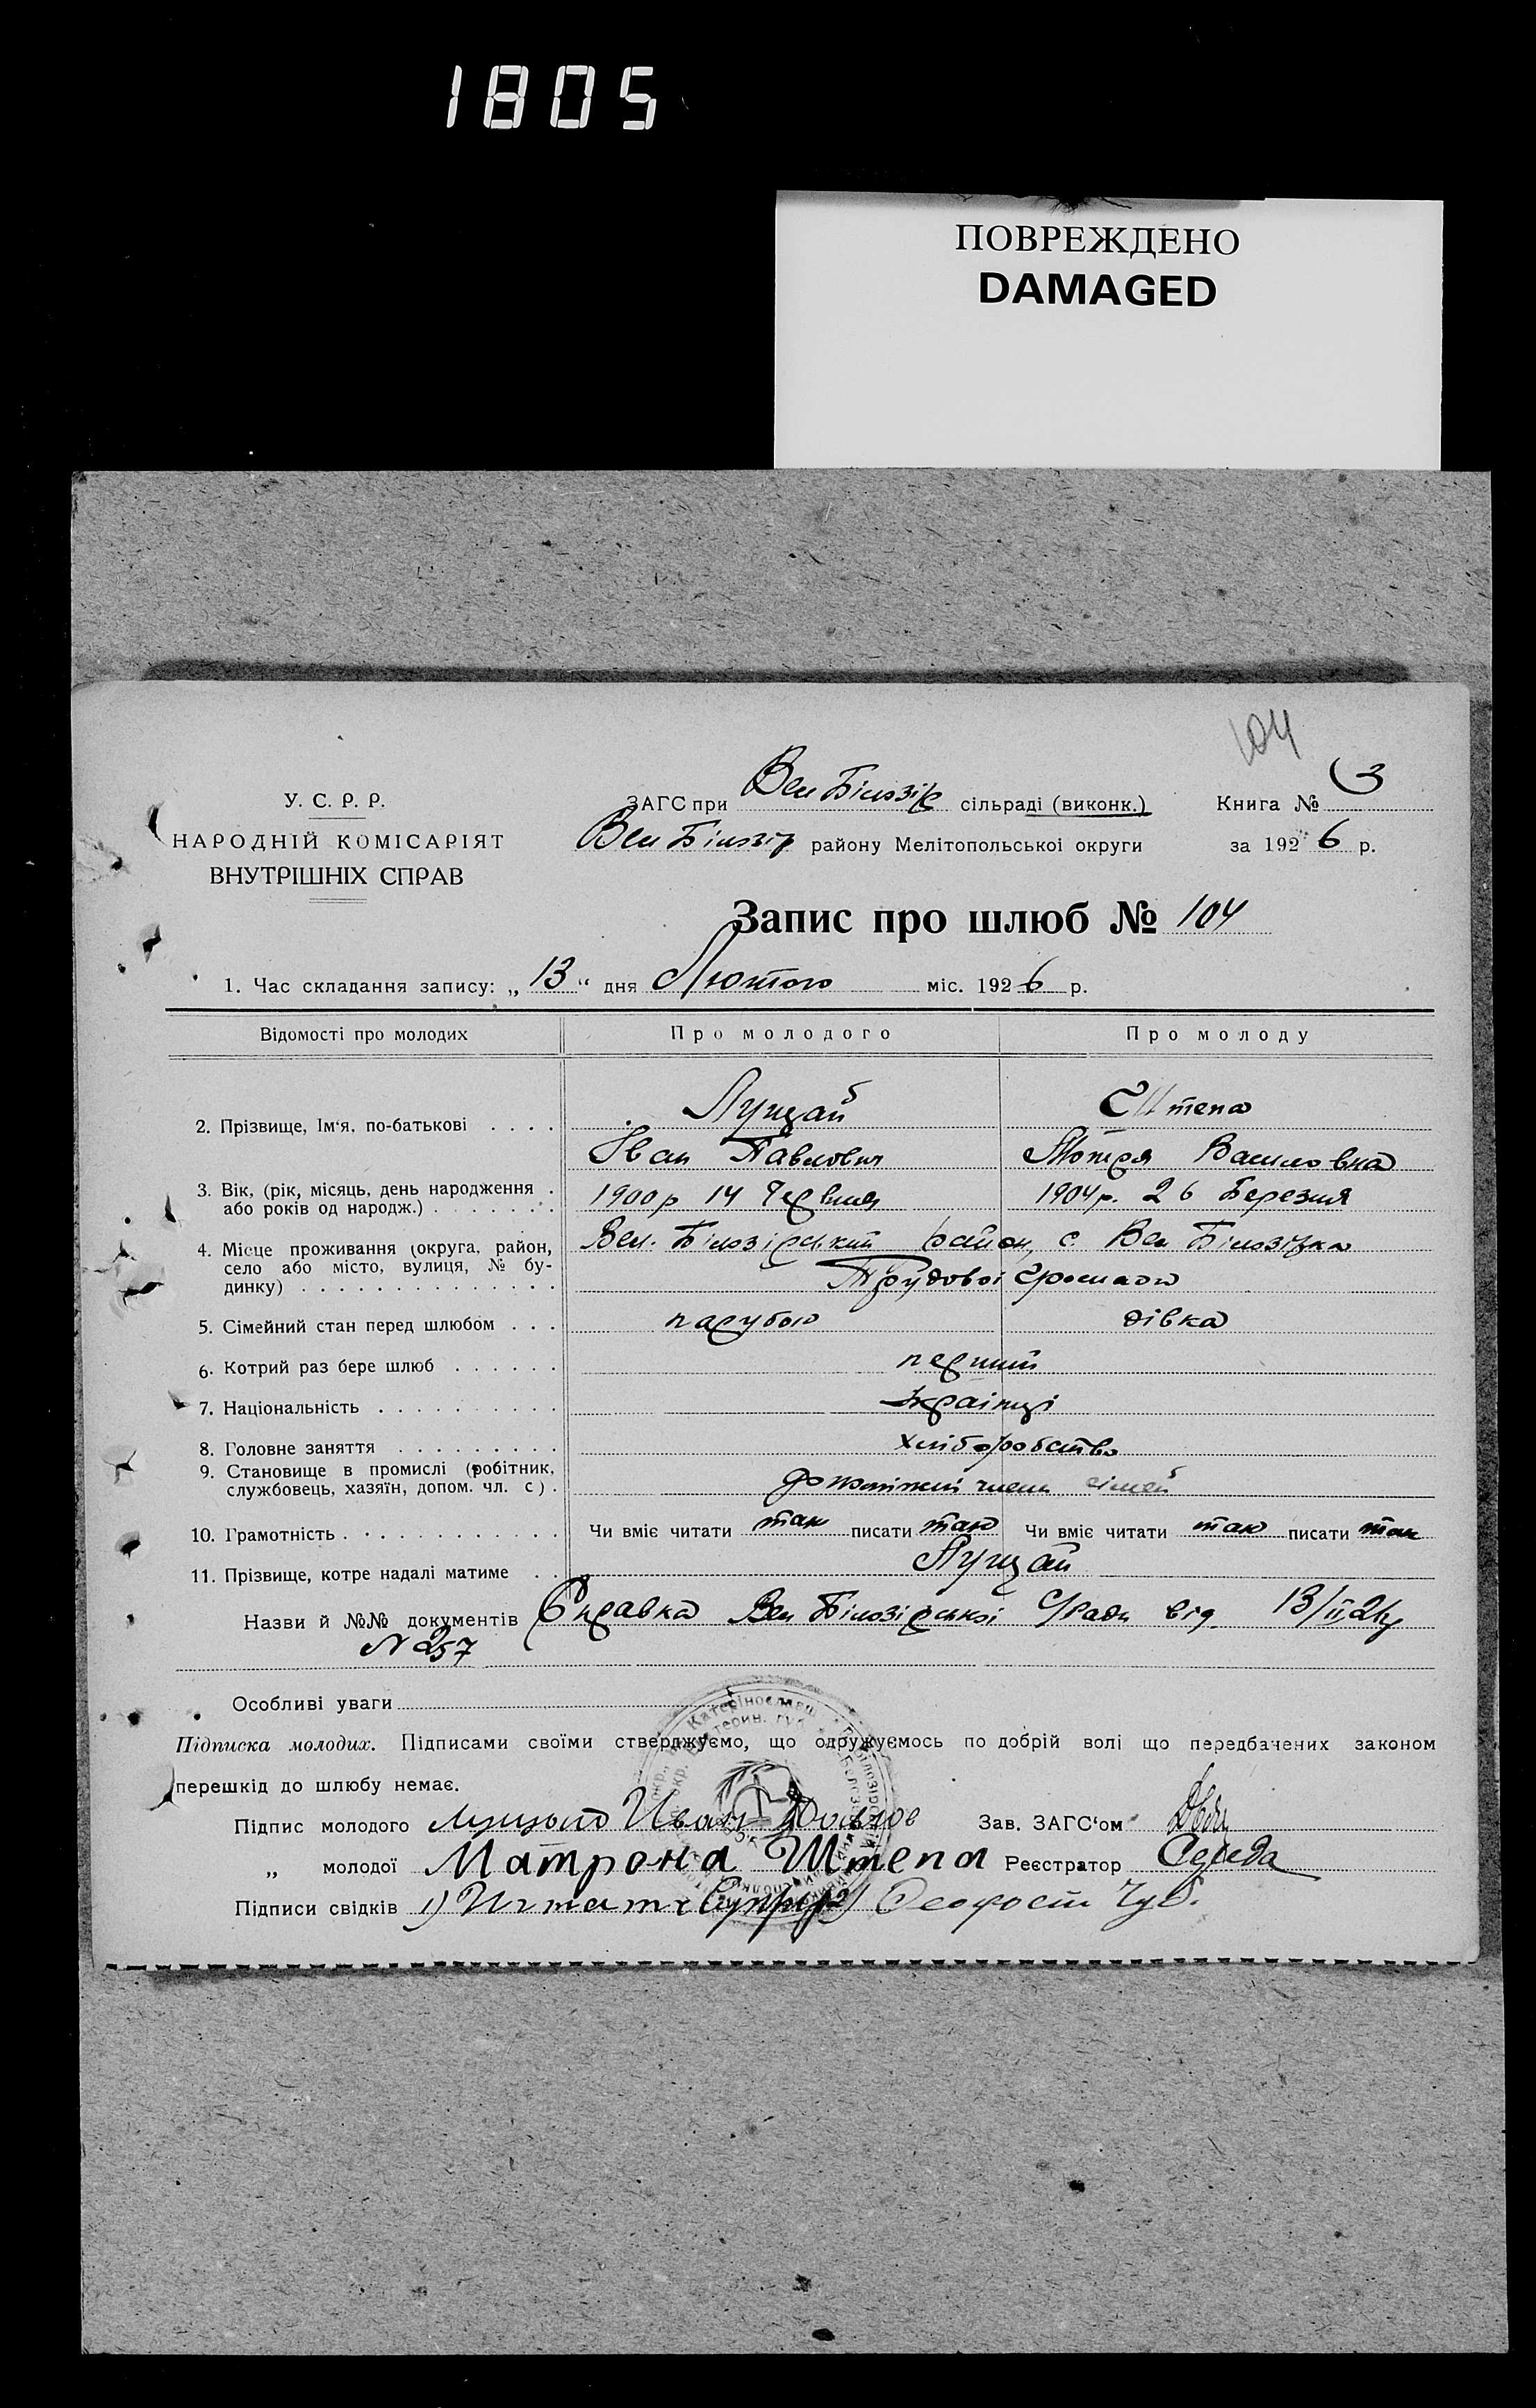 1805
ПОВРЕЖДЕНО
DAMAGED
104
У. С. Р. Р.
НАРОДНІЙ КОМІСАРІЯТ
ВНУТРІШНІХ СПРАВ
ЗАГС при Вел Білозір сільраді (виконк.) Книга № 3
Вел Білозір району Мелітопольскої округи за 1926 р.
Запис про шлюб № 104
1. Час складання запису: „13“ дня Лютого міс. 1926 р.
Відомості про молодих Про молодого Про молоду
2. Прізвище, Ім'я, по-батькові . . . . Лущай Штепа
Іван Павлович Мотря Василовна
3. Вік, (рік, місяць, день народження . 1900 р 14 Червня 1904 р. 26 Березня
або років од народж.) . . . . . . .
4. Місце проживання (округа, район, Вел. Білозірський район, с. Вел Білозірка
село або місто, вулиця, № бу-
динку) . . . . . . . . . . . . . . Трудової громади
5. Сімейний стан перед шлюбом . . . парубок дівка
6. Котрий раз бере шлюб . . . . . . перший
7. Національність . . . . . . . . . . Українці
8. Головне заняття . . . . . . . . . хліборобство
9. Становище в промислі (робітник,
службовець, хазяїн, допом. чл. с) . члени сімей
10. Грамотність . . . . . . . . . . . . Чи вміє читати так писати так Чи вміє читати так писати так
11. Прізвище, котре надалі матиме . . Лущай
Назви й №№ документів Справка Вел Білозірської С/Ради від 13/II 26 р
N 257
Особливі уваги
Підписка молодих. Підписами своїми стверджуємо, що одружуємось по добрій волі що передбачених законом
перешкід до шлюбу немає.
Підпис молодого Иван Зав. ЗАГС'ом
„ молодої Матрона Штепа Реєстратор Середа
Підписи свідків 1) 2) Чуб.